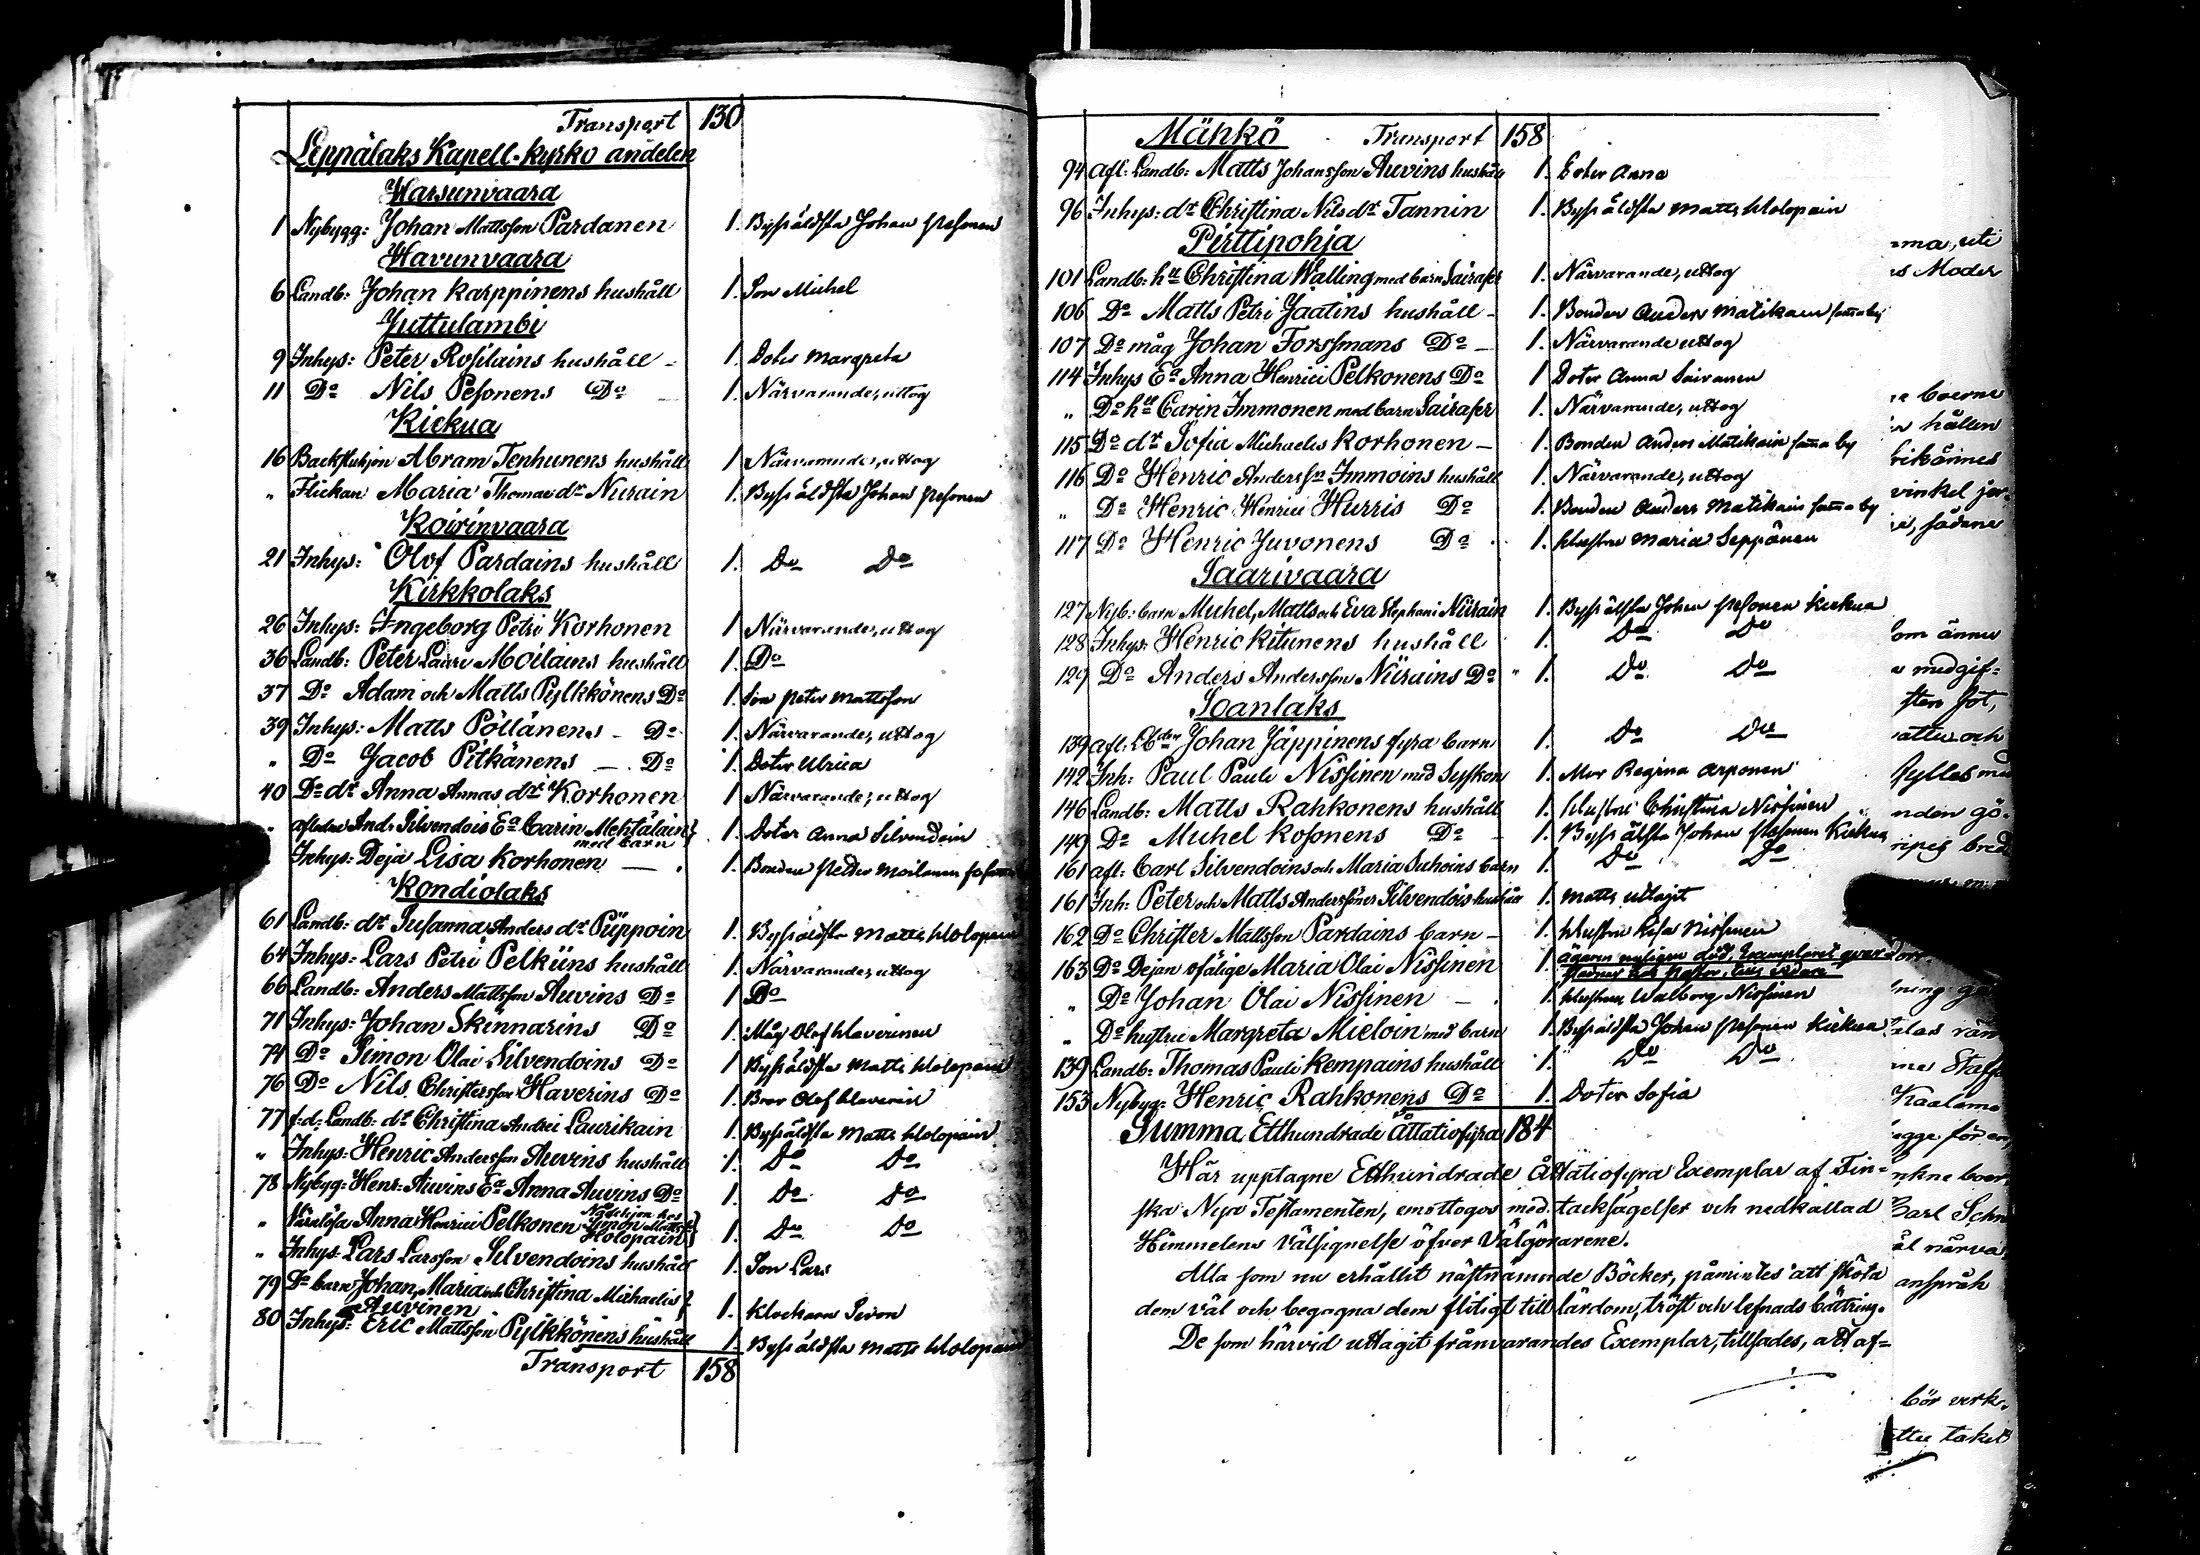 Transport 130
Leppälaks Kapell-kyrko andelen
Warsunvaara
1 Nybygg: Johan Mattsson Pardanen 1. Byssäldsta Johan Pesonen
Havunvaara
6 Landb: Johan Karppinens hushåll 1. Son Michel
Juttulambi
9 Inhys: Peter Rossilains hushåll - 1. Doter Margreta
11 Do Nils Pesonens Do 1. Närvarande, uttog
Kiekua
16 Backstukjon Abram Tenhunens hushåll 1 Närvarande, uttog
" Flickan Maria Thomae dr Nurain 1. Byssäldsta Johan Pesonen
Koirinvaara
21 Inhys: Olof Pardains hushåll 1. Do Do
Kirkkolaks
26 Inhys: Ingeborg Petri Korhonen 1 Närvarande, uttog
36 Landb: Peter Lauri Moilains hushåll 1. Do
37 Do Adam och Matts Pylkkönens Do 1. Son Peter Mattsson
39 Inhys: Matts Pöllänens - Do 1. Närvarande, uttog
" Do Jacob Pitkänens - Do 1. Doter Ulrica
40 Do dr Anna Annas dr Korhonen 1 Närvarande, uttog
" afledne And: Silvendois Ea Carin Mehtälain 1. Doter Anna Silvendoin
med barn
" Inhys: Deja Lisa Korhonen - 1. Bonden Petter Moilanen
Kondiolaks
61 Landb: dr Susanna Anders dr Püppoin 1. Byssäldsta Matts Holopain
64 Inhys: Lars Petri Pelküns hushåll 1. Närvarande, uttog
66 Landb: Anders Mattsson Auvins Do 1 Do
71 Inhys: Johan Skinnarins Do 1. Måg Olof Haverinen
74 Do Simon Olai Silvendoins Do 1 Byssäldsta Matts Holopain
76 Do Nils Christersson Haverins Do 1. Bror Olof Haverin
77 f:d: Landb: dr Christina Andrei Laurikain 1. Byssäldsta Matts Holopain
" Inhys: Henric Andersson Auvins hushåll 1. Do Do
78 Nybyg: Henr: Auvins Ea Anna Auvins Do 1. Do Do
" Värnlösa Anna Henrici Pelkonen hos Simon Matts Holopain 1. Do Do
" Inhys: Lars Larsson Silvendoins hushåll 1. Son Lars
79 Do barn Johan, Maria och Christina Michaelis 1. Klockaren Siron
Auvinen
80 Inhys: Eric Mattsson Pylkkönens hushåll 1. Byssäldsta Matts Holopain
Transport 158
Mähkö Transport 158
94 afl: Landb: Matts Johansson Auvins hushåll 1. Doter Anna
96 Inhys: dr Christina Nils dr Tannin 1. Byssäldsta Matts Holopain
Pirttipohja
101 Landb: hu Christina Walling med barn Sairaser 1. Närvarande, uttog
106 Do Matts Petri Jaatins hushåll - 1. Bonden Anders Matikain samma by
107 Do måg Johan Forssmans Do - 1. Närvarande uttog
114 Inhys Ea Anna Henrici Pelkonens Do 1 Doter Anna Sairanen
" Do hu Carin Immonen med barn Sairaser 1. Närvarande, uttog
115 Do dr Sofia Michaelis Korhonen - 1. Bonden Anders Matikain samma by
116 Do Henric Andersson Immoins hushåll 1. Närvarande, uttog
" Do Henric Henrici Hurris Do 1. Bonden Anders Matikain samma by
117 Do Henric Juvonens Do 1. Hustru Maria Seppänen
Saarivaara
127 Nyb: barn Michel, Matts och Eva Stephani Nürain 1. Byssälsta Johan Pesonen Kiekua
128 Inhys: Henric Kitunens hushåll 1. Do Do
129 Do Anders Andersson Nürains Do 1. Do Do
Soanlaks
139 afl: Lbden Johan Jäppinens fyra barn 1. Do Do
142 Inh: Paul Pauli Nissinen med Syskon 1. Mor Regina Arponen
146 Landb: Matts Rahkonens hushåll 1. Hustru Christina Nissinen
149 Do Michel Kosonens Do - 1. Byssälsta Johan Pesonen Kiekua
161 afl: Carl Silvendoins och Maria Suhoins barn 1. Do Do
161 Inh: Peter och Matts Anderssöner Silvendois hushåll 1. Matts uttagit
162 Do Christer Mattsson Pardains barn - 1. Hustru Lisa Nissinen
163 Do Dejan ofälige Maria Olai Nissinen 1. ägaren nyligen död, Exemplaret qvar
" Do Johan Olai Nissinen - 1. Hustru Walborg Nissinen
" Do hustru Margreta Mieloin med barn 1. Byssäldsta Johan Pesonen Kiekua
139 Landb: Thomas Pauli Kempains hushåll 1. Do Do
153 Nybyg: Henric Rahkonens Do 1. Doter Sofia
Summa Etthundrade Åttatiofyra 184
Här upptagne Etthundrade Åttatiofyra Exemplar af Fin-
ska Nya Testamenten, emottogos med tacksägelser och nedkallad
Himmelens Välsignelse öfver Välgörarene.
Alla som nu erhållit nästnämnde Böcker, påmintes att sköta
dem väl och begagna dem flitigt till lärdom, tröst och lefnads bättring.
De som härvid uttagit frånvarandes Exemplar, tillsades, att af-
uti
Moder
hållen
sådana
ännu
medgif-
och
Carl
anspråk
bör verk-
taket